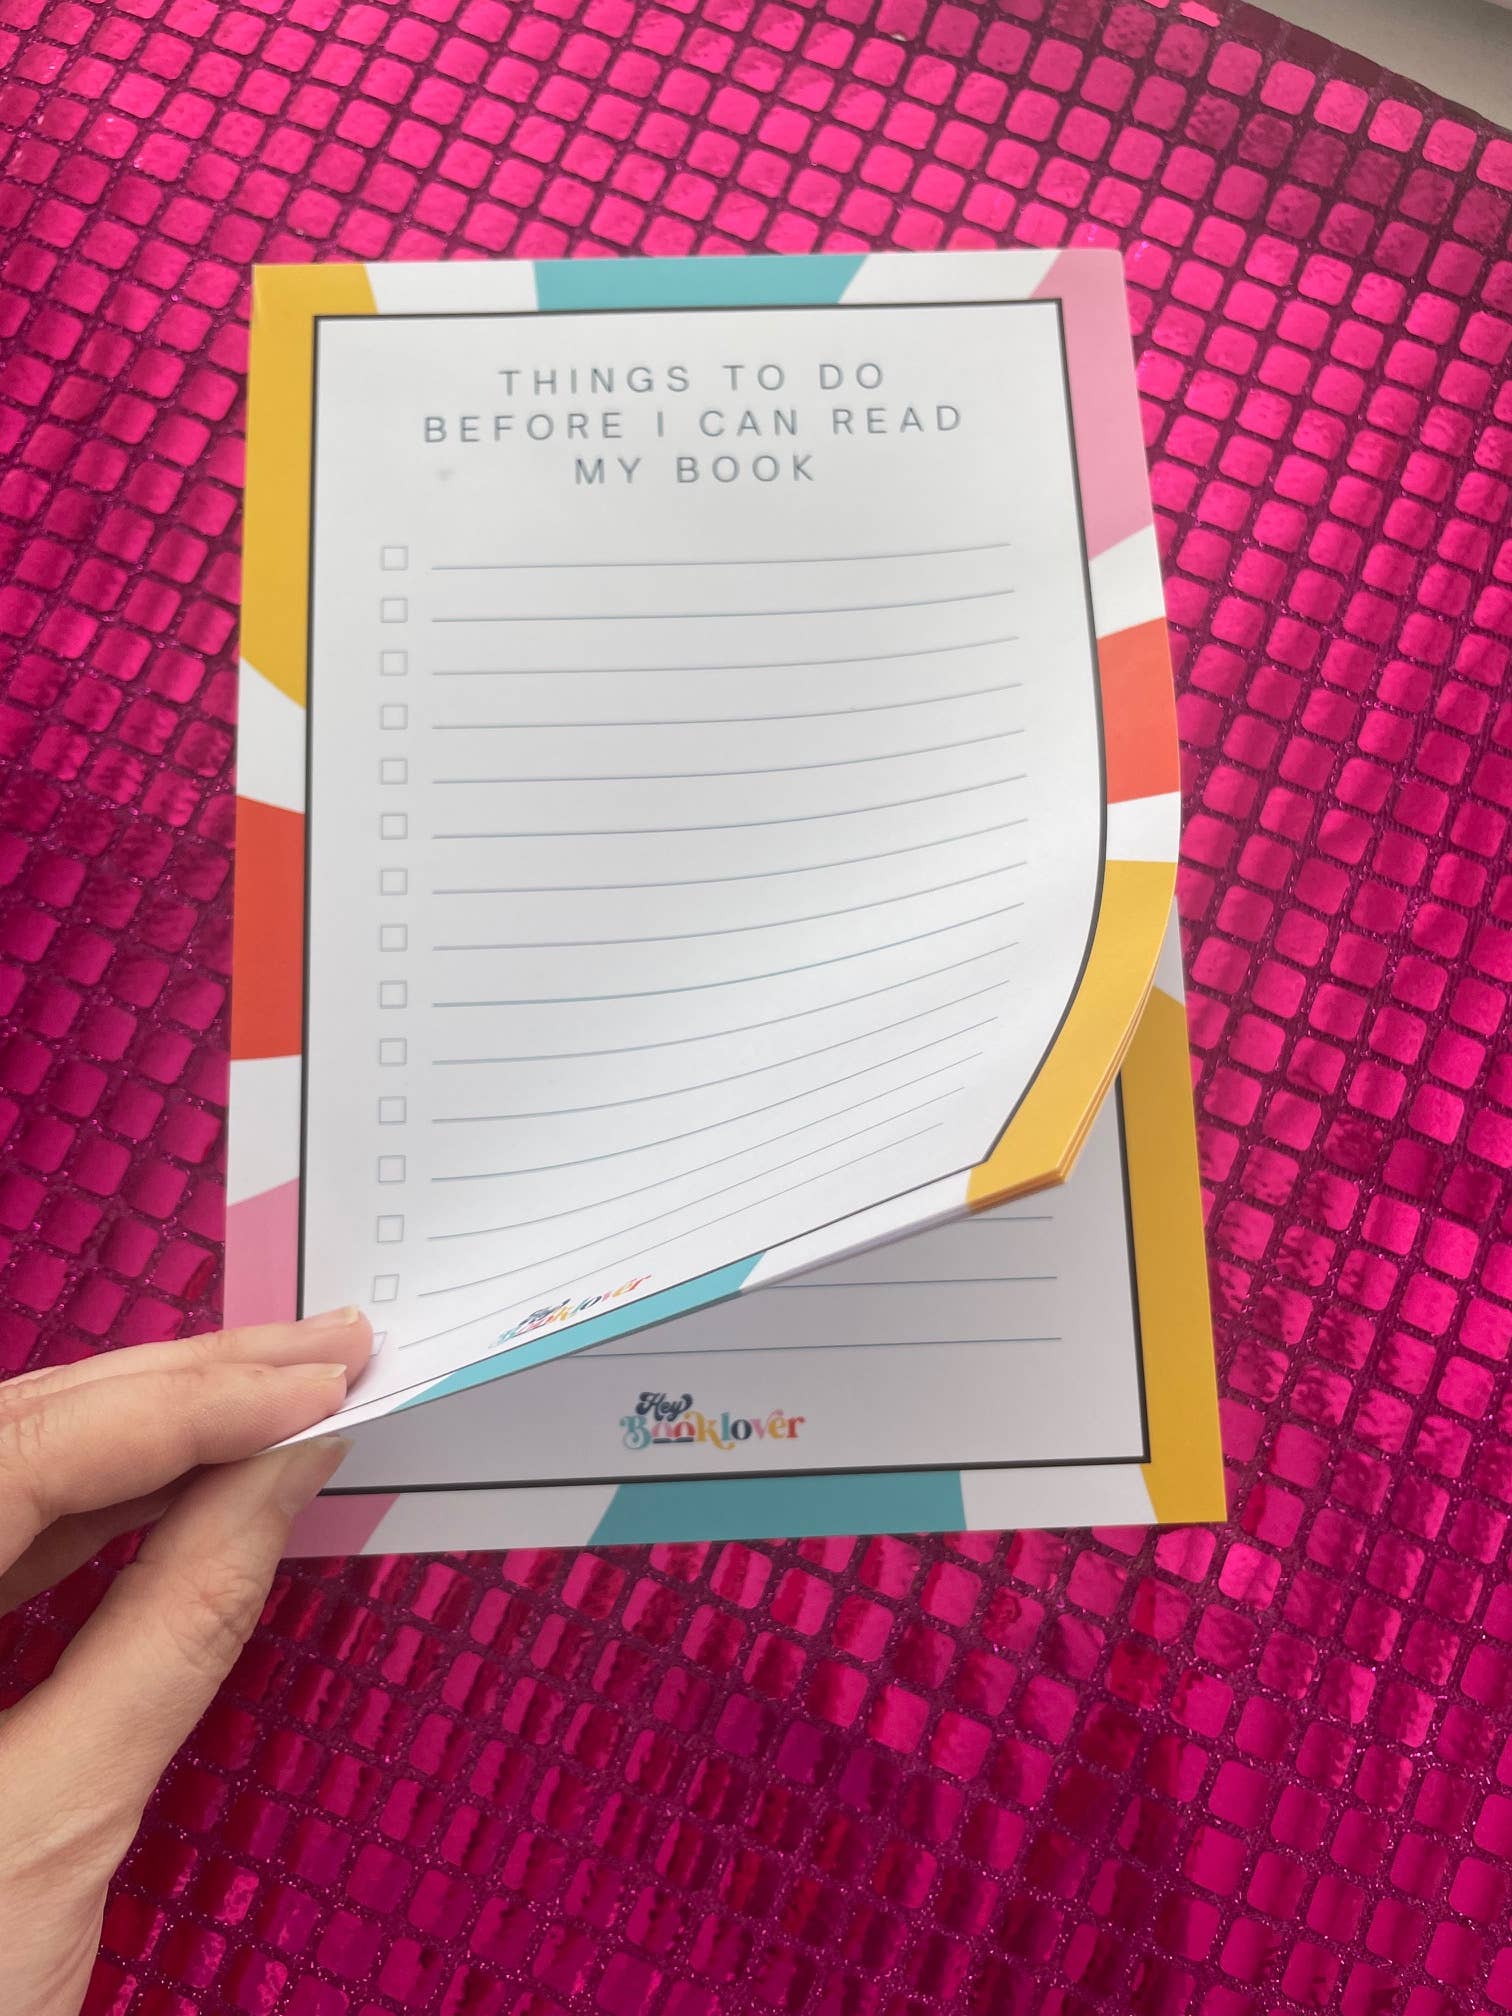 THINGS TO DO
BEFORE I CAN READ
MY BOOK
Hey
Booklover
Hey
Booklover